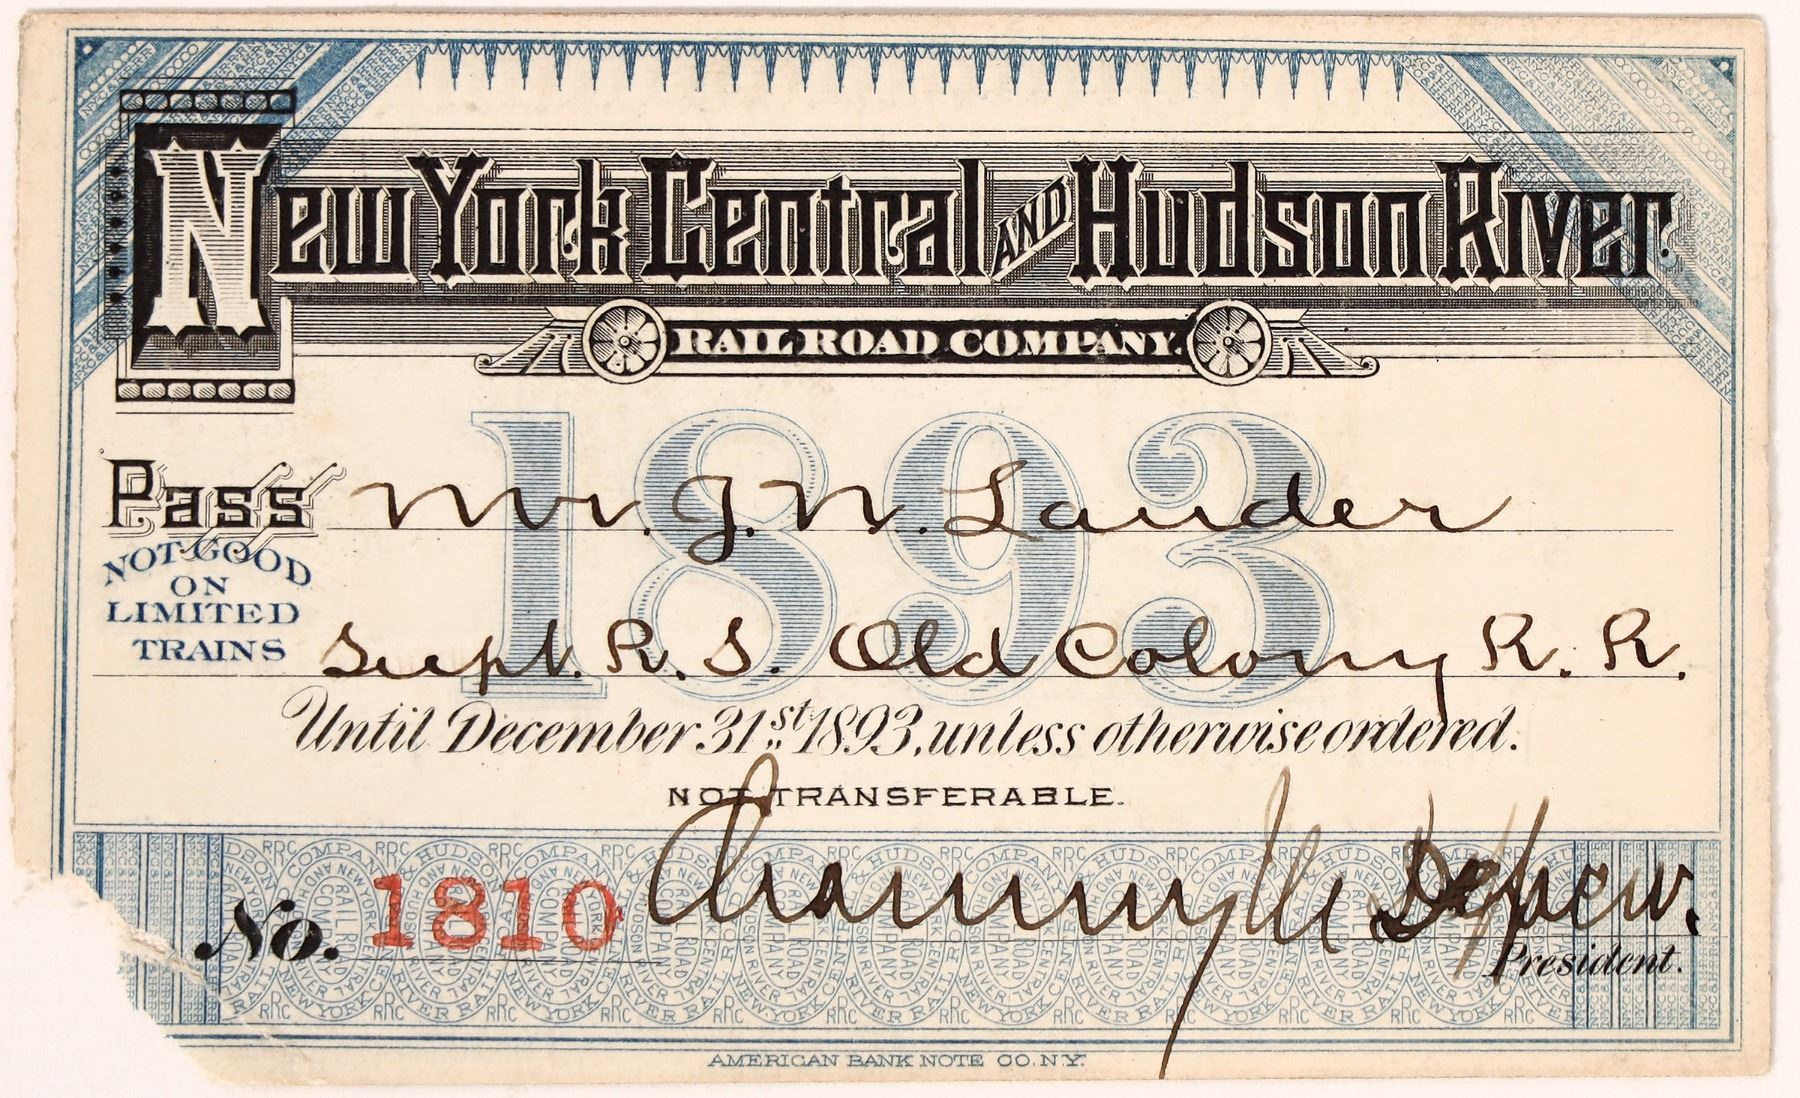 New York Central AND Hudson River.
RAIL ROAD COMPANY.
1893
Pass Mr. J. N. Lauder
NOT GOOD
ON
LIMITED
TRAINS
Supt. R. S. Old Colony R. R.
Until December 31st 1893, unless otherwise ordered.
NOT TRANSFERABLE.
No. 1810 Chauncey M Depew.
President.
AMERICAN BANK NOTE CO. N.Y.